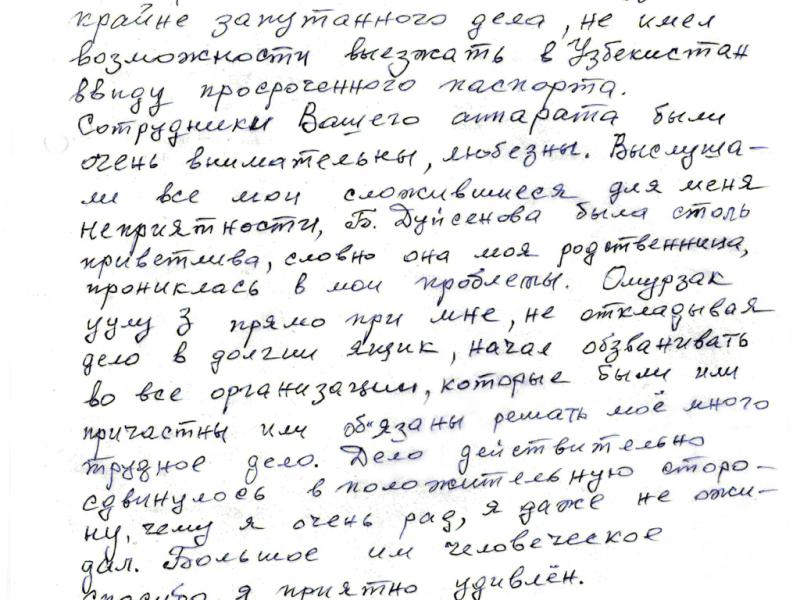 крайне запутанного дела, не имел
возможности выезжать в Узбекистан
ввиду просроченного паспорта.
Сотрудники Вашего аппарата были
очень внимательны, любезны. Выслуша-
ли все мои сложившиеся для меня
неприятности, Б. Дуйсенова была столь
приветлива, словно она моя родственница,
прониклась в мои проблемы. Омурзак
уулу З прямо при мне, не откладывая
дело в долгии ящик, начал обзванивать
во все организации, которые были или
причастны или об"язаны решать моё много
трудное дело. Дело действительно
сдвинулось в положительную сторо-
ну, чему я очень рад, я даже не ожи-
дал. Большое им человеческое
спасибо я приятно удивлён.